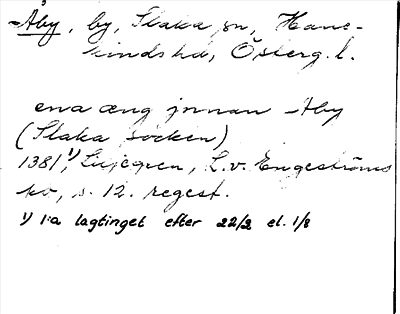 -Åby, by, Slaka sn, Hane-
kinds hd, Österg. l.
ena æng jnnan -Aby
(Slaka socken)
1381¹⁾, Liljegren, L. v. Engeströms
ko, s. 12. regest.
1) 1:a lagtinget efter 22/2 el. 1/8